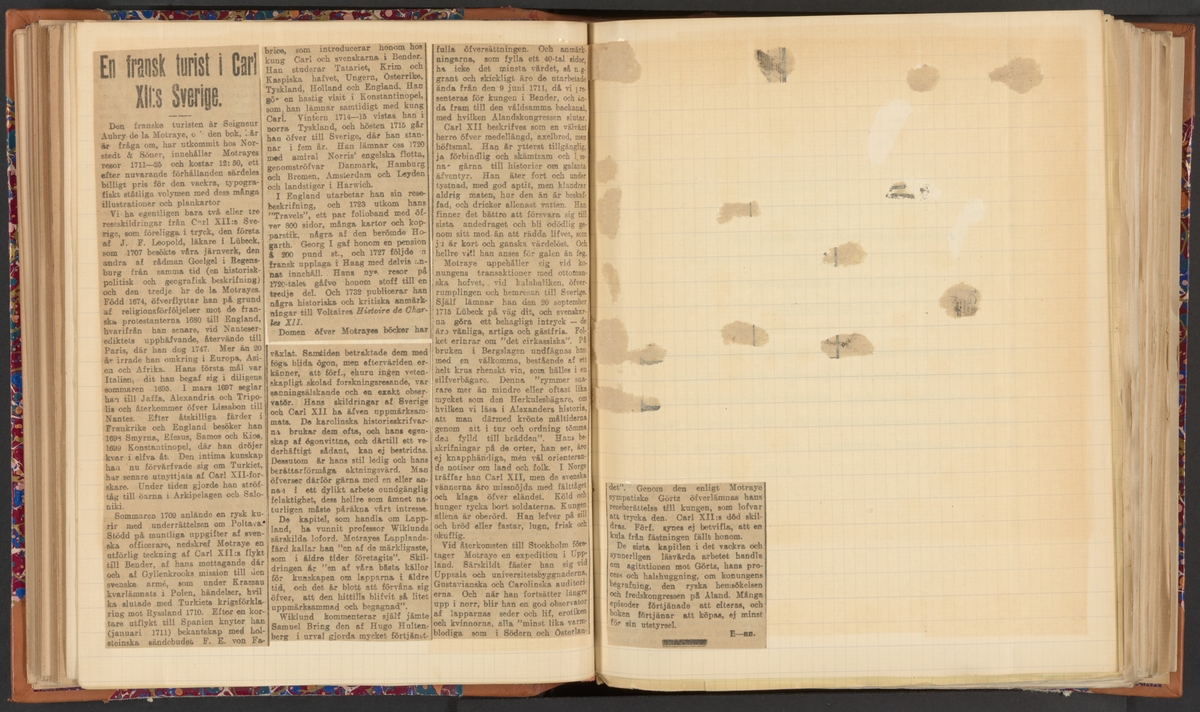 En fransk turist i Carl
XII:s Sverige.
Den franske turisten är Seigneur
Aubry de la Motraye, och den bok, här
är fråga om, har utkommit hos Nor-
stedt & Söner, innehåller Motrayes
resor 1711—25 och kostar 12:50, ett
efter nuvarande förhållanden särdeles
billigt pris för den vackra, typogra-
fiskt ståtliga volymen med dess många
illustrationer och plankartor
Vi ha egentligen bara två eller tre
reseskildringar från Carl XII:s Sve-
rige, som föreligga i tryck, den första
af J. F. Leopold, läkare i Lübeck,
som 1707 besökte våra järnverk, den
andra af rådman Goelgel i Regens-
burg från samma tid (en historisk-
politisk och geografisk beskrifning)
och den tredje hr de la Motrayes.
Född 1674, öfverflyttar han på grund
af religionsförföljelser mot de fran-
ska protestanterna 1680 till England,
hvarifrån han senare, vid Nanteser-
ediktets upphäfvande, återvände till
Paris, där han dog 1747. Mer än 20
år irrade han omkring i Europa, Asi-
en och Afrika. Hans första mål var
Italien, dit han begaf sig i diligens
sommaren 1695. I mars 1697 seglar
han till Jaffa, Alexandria och Tripo-
lis och återkommer öfver Lissabon till
Nantes. Efter åtskilliga färder i
Frankrike och England besöker han
1698 Smyrna, Efesus, Samos och Kios,
1699 Konstantinopel, där han dröjer
kvar i elfva år. Den intima kunskap
han nu förvärfvade sig om Turkiet,
har senare utnyttjats af Carl XII-for-
skare. Under tiden gjorde han ströf-
tåg till öarna i Arkipelagen och Salo-
niki.
Sommaren 1709 anlände en rysk ku-
rir med underrättelsen om Poltava.
Stödd på muntliga uppgifter af sven-
ska officerare, nedskref Motraye en
utförlig teckning af Carl XII:s flykt
till Bender, af hans mottagande där
och af Gyllenkrooks mission till den
svenska armé, som under Krassau
kvarlämnats i Polen, händelser, hvil-
ka slutade med Turkiets krigsförkla-
ring mot Ryssland 1710. Efter en kor-
tare utflykt till Spanien knyter han
(januari 1711) bekantskap med hol-
steinska sändebudet F. E. von Fa-
brice, som introducerar honom hos
kung Carl och svenskarna i Bender.
Han studerar Tatariet, Krim och
Kaspiska hafvet, Ungern, Österrike,
Tyskland, Holland och England. Han
gör en hastig visit i Konstantinopel,
som han lämnar samtidigt med kung
Carl. Vintern 1714—15 vistas han i
norra Tyskland, och hösten 1715 går
han öfver till Sverige, där han stan-
nar i fem år. Han lämnar oss 1720
med amiral Norris' engelska flotta,
genomströfvar Danmark, Hamburg
och Bremen, Amsterdam och Leyden
och landstiger i Harwich.
I England utarbetar han sin rese-
beskrifning, och 1723 utkom hans
"Travels", ett par folioband med öf-
ver 800 sidor, många kartor och kop-
parstik, några af den berömde Ho-
garth. Georg I gaf honom en pension
å 200 pund st., och 1727 följde en
fransk upplaga i Haag med delvis an-
nat innehåll. Hans nya resor på
1720-talet gåfvo honom stoff till en
tredje del. Och 1732 publicerar han
några historiska och kritiska anmärk-
ningar till Voltaires Histoire de Char-
les XII.
Domen öfver Motrayes böcker har
växlat. Samtiden betraktade dem med
föga blida ögon, men eftervärlden er-
känner, att förf., ehuru ingen veten-
skapligt skolad forskningsresande, var
sanningsälskande och en exakt obser-
vatör. Hans skildringar af Sverige
och Carl XII ha äfven uppmärksam-
mats. De karolinska historieskrifvar-
na brukar dem ofta, och hans egen-
skap af ögonvittne, och därtill ett ve-
derhäftigt sådant, kan ej bestridas.
Dessutom är hans stil ledig och hans
berättarförmåga aktningsvärd. Man
öfverser därför gärna med en eller an-
nan i ett dylikt arbete oundgänglig
felaktighet, dess hellre som ämnet na-
turligen måste påräkna vårt intresse.
De kapitel, som handla om Lapp-
land, ha vunnit professor Wiklunds
särskilda loford. Motrayes Lapplands-
färd kallar han "en af de märkligaste,
som i äldre tider företagits". Skil-
dringen är "en af våra bästa källor
för kunskapen om lapparna i äldre
tid, och det är blott att förvåna sig
öfver, att den hittills blifvit så litet
uppmärksammad och begagnad".
Wiklund kommenterar själf jämte
Samuel Bring den af Hugo Hulten-
berg i urval gjorda mycket förtjänst-
fulla öfversättningen. Och anmärk-
ningarna, som fylla ett 40-tal sidor,
ha icke det minsta värdet, så nog-
grant och skickligt äro de utarbetade
ända från den 9 juni 1711, då vi pre-
senteras för kungen i Bender, och än-
da fram till den våldsamma backanal,
med hvilken Ålandskongressen slutar.
Carl XII beskrifves som en välväxt
herre öfver medellängd, axelbred, men
höftsmal. Han är ytterst tillgänglig,
ja förbindlig och skämtsam och lyss-
nar gärna till historier om galanta
äfventyr. Han äter fort och under
tystnad, med god aptit, men klandrar
aldrig maten, hur den än är beskaf-
fad, och dricker allenast vatten. Han
finner det bättre att försvara sig till
sista andedraget och bli odödlig ge-
nom sitt mod än att rädda lifvet, som
ju är kort och ganska värdelöst. Och
hellre vill han anses för galen än feg.
Motraye uppehåller sig vid ko-
nungens transaktioner med ottoman-
ska hofvet, vid kalabaliken, öfver-
rumplingen och hemresan till Sverige.
Själf lämnar han den 20 september
1715 Lübeck på väg dit, och svenskar-
na göra ett behagligt intryck — de
äro vänliga, artiga och gästfria. Fol-
ket erinrar om "det cirkassiska". På
bruken i Bergslagen undfägnas han
med en välkomma, bestående af ett
helt krus rhenskt vin, som hälles i en
silfverbägare. Denna "rymmer sna-
rare mer än mindre eller oftast lika
mycket som den Herkulesbägare, om
hvilken vi läsa i Alexanders historia,
att man därmed krönte måltiderna
genom att i tur och ordning tömma
den fylld till brädden". Hans be-
skrifningar på de orter, han ser, äro
ej knapphändiga, men väl orienteran-
de notiser om land och folk. I Norge
träffar han Carl XII, men de svenska
vännerna äro missnöjda med fälttåget
och klaga öfver eländet. Köld och
hunger rycka bort soldaterna. Kungen
allena är oberörd. Han lefver på sill
och bröd eller fastar, lugn, frisk och
okuflig.
Vid återkomsten till Stockholm före-
tager Motraye en expedition i Upp-
land. Särskildt fäster han sig vid
Uppsala och universitetsbyggnaderna,
Gustavianska och Carolinska auditori-
erna. Och när han fortsätter längre
upp i norr, blir han en god observator
af lapparnas seder och lif, erotiken
och kvinnorna, alla "minst lika varm-
blodiga som i Södern och Österlan-
det". Genom den enligt Motraye
sympatiske Görtz öfverlämnas hans
reseberättelse till kungen, som lofvar
att trycka den. Carl XII:s död skil-
dras. Förf. synes ej betvifla, att en
kula från fästningen fällt honom.
De sista kapitlen i det vackra och
synnerligen läsvärda arbetet handla
om agitationen mot Görtz, hans pro-
cess och halshuggning, om konungens
begrafning, den ryska hemsökelsen
och fredskongressen på Åland. Många
episoder förtjänade att citeras, och
boken förtjänar att köpas, ej minst
för sin utstyrsel.
E—an.